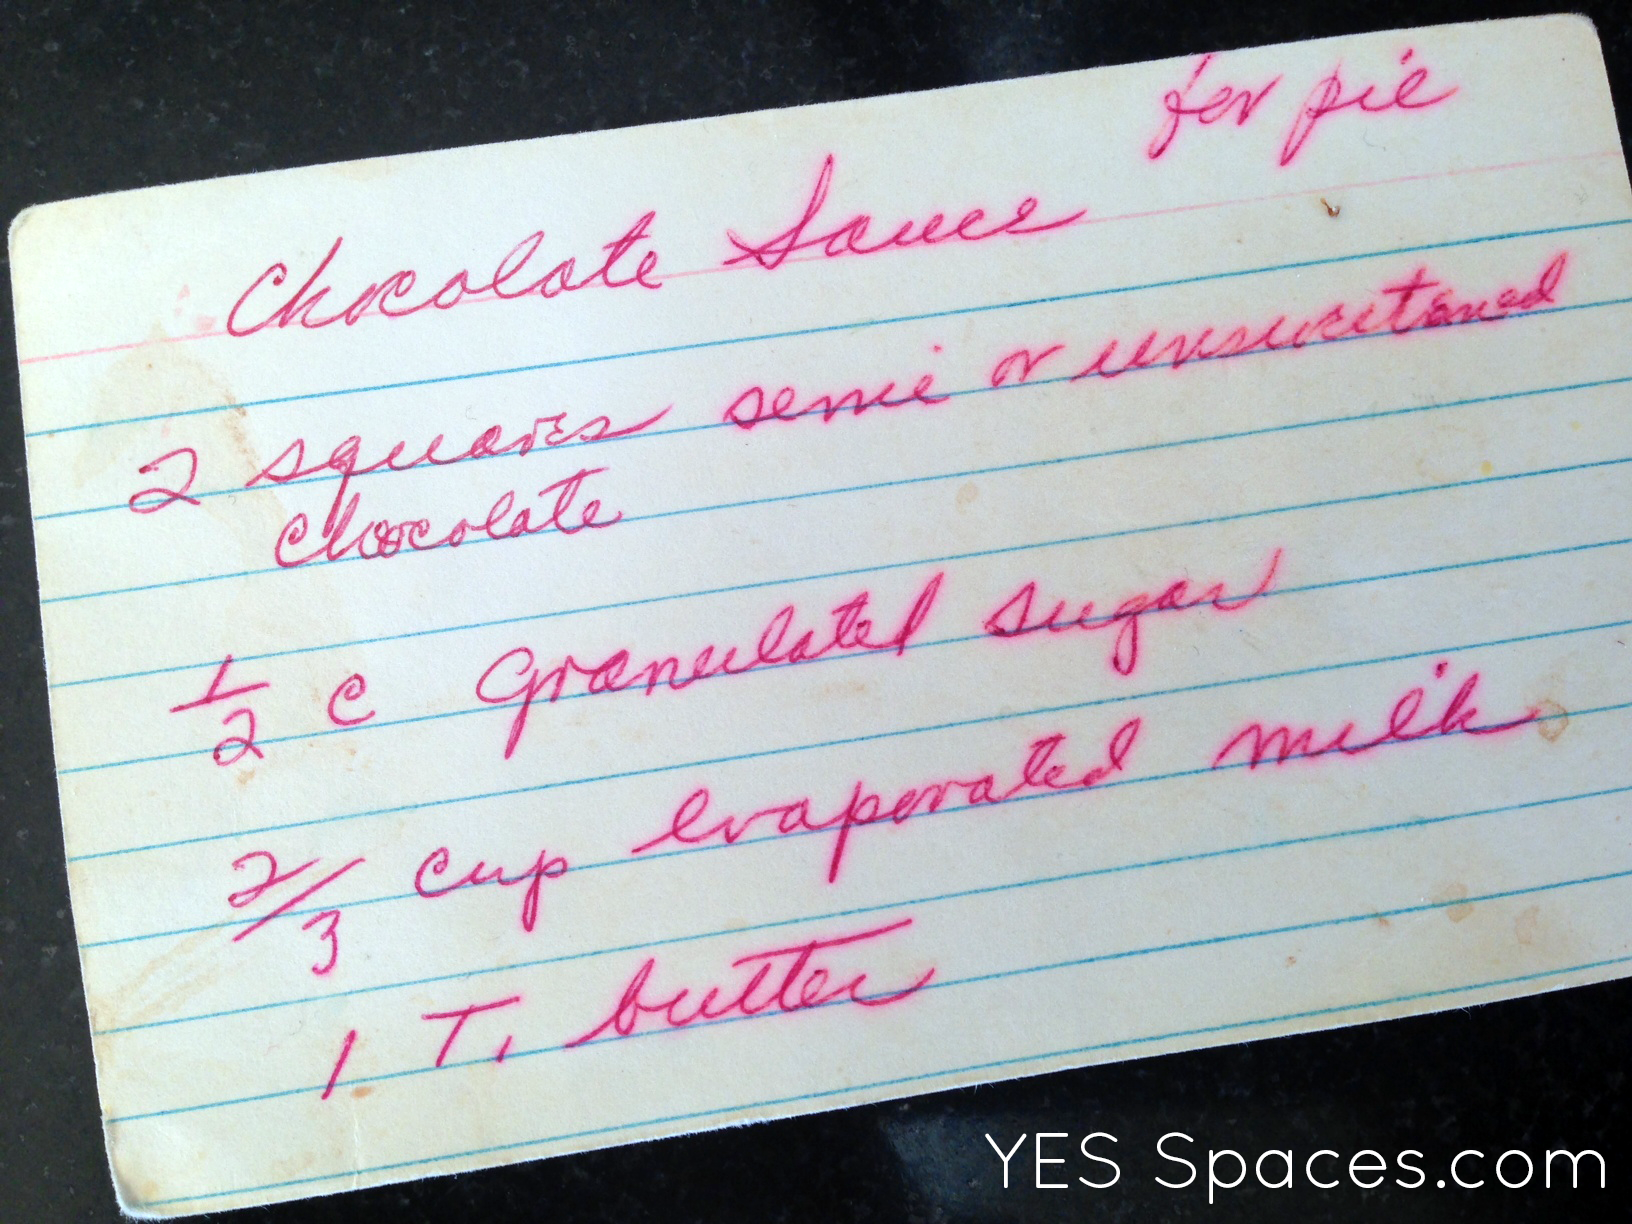 for pie
Chocolate Sauce
2 squares semi or unsweetened
chocolate
1/2 c Granulated sugar
2/3 cup evaporated milk
1 T. butter
YES Spaces.com